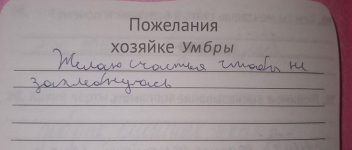 Пожелания
хозяйке Умбры
Желаю счастья чтобы не
захлебнулась